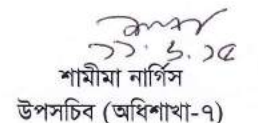 ১১.৬.১৫
শামীমা নার্গিস
উপসচিব (অধিশাখা-৭)